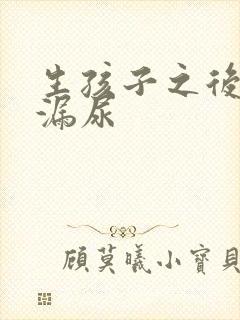 生孩子之後
漏尿
顾莫曦小寶貝